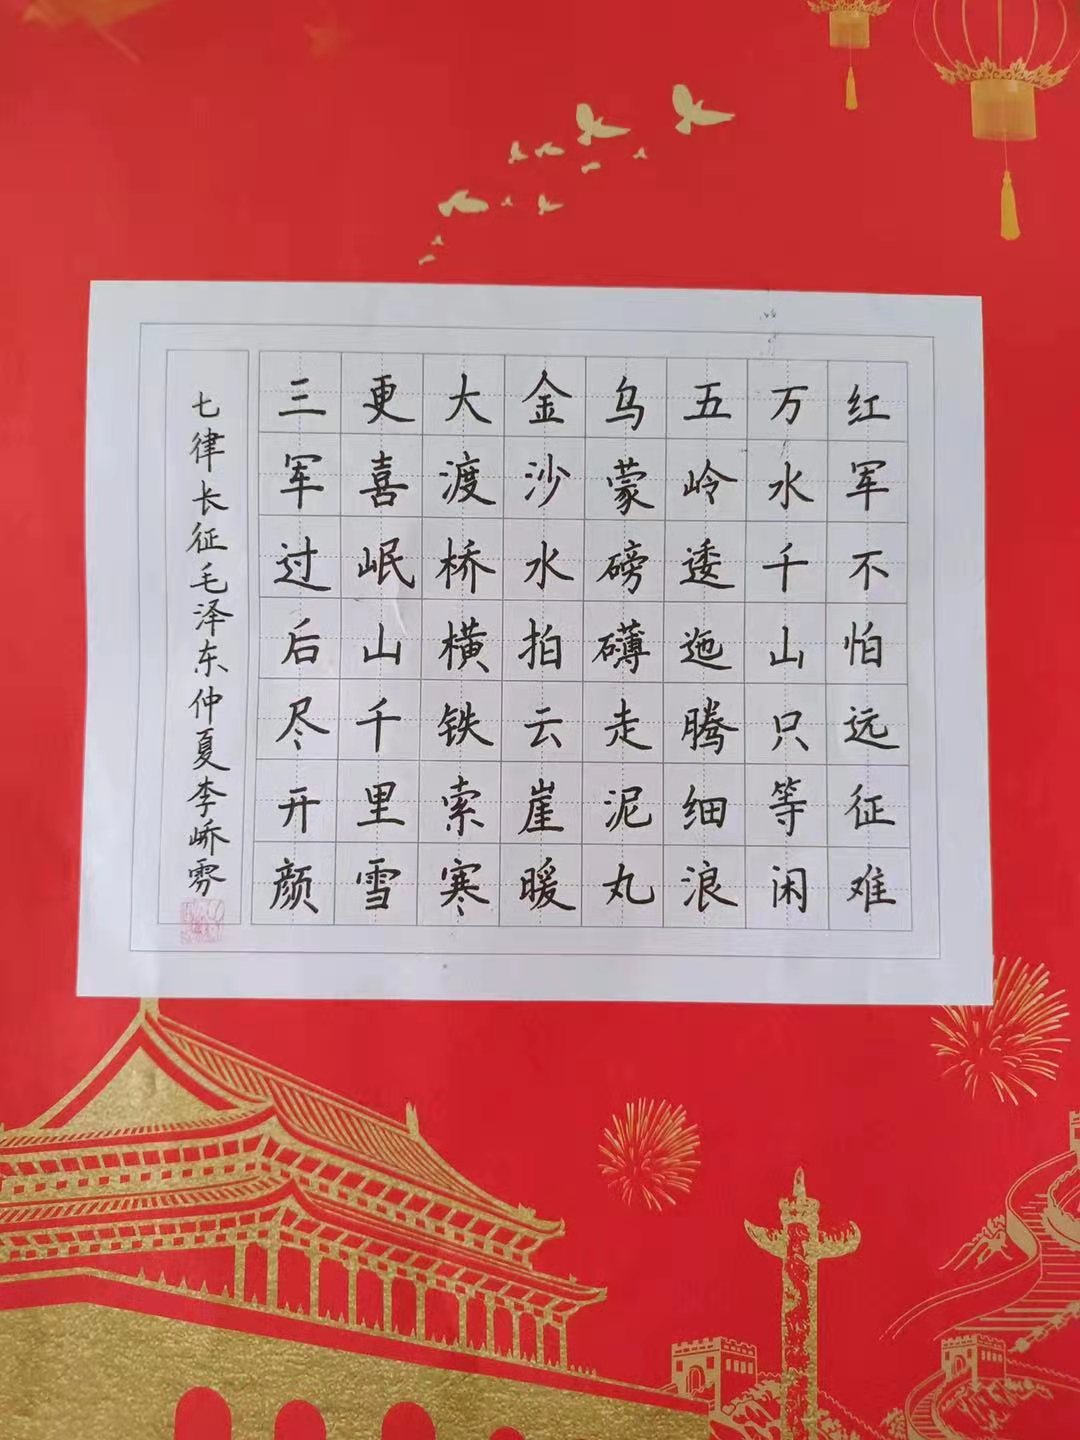 红军不怕远征难
万水千山只等闲
五岭逶迤腾细浪
乌蒙磅礴走泥丸
金沙水拍云崖暖
大渡桥横铁索寒
更喜岷山千里雪
三军过后尽开颜
七律长征毛泽东仲夏李峤雰